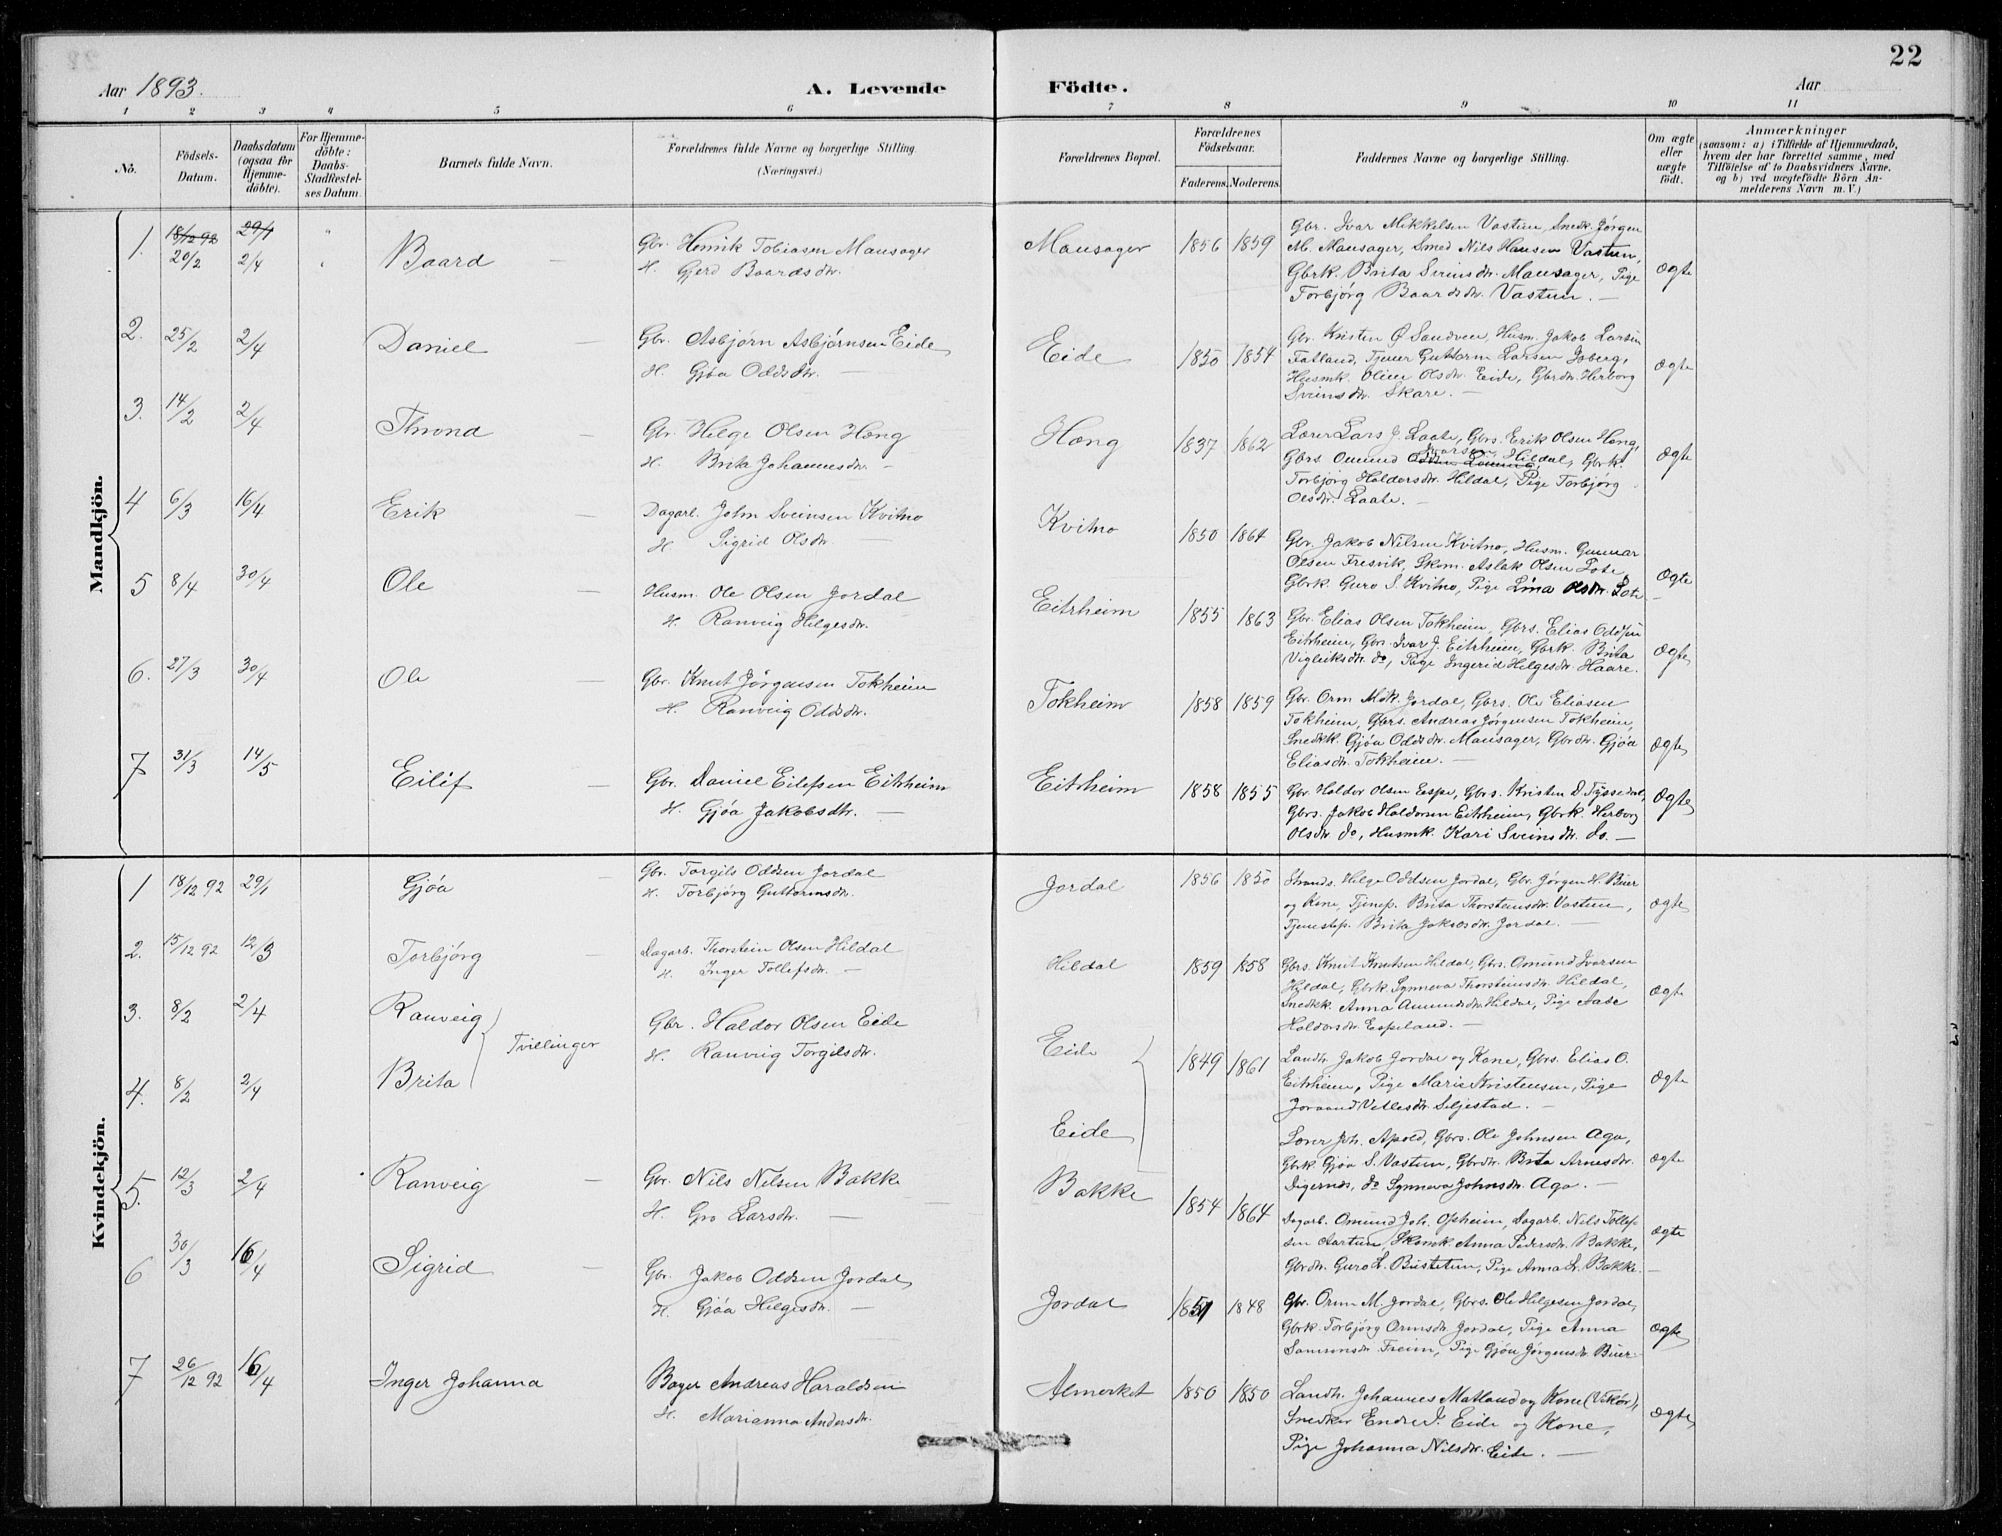 22
Aar 1893.
A. Levende Födte.
Aar
1 2 3 4 5 6 7 8 9 10 11
No.
Födsels-Datum.
Daabsdatum (ogsaa for Hjemme-döbte).
For Hjemme-döbte: Daabs-Stadfæstel-ses Datum.
Barnets fulde Navn.
Forældrenes fulde Navne og borgerlige Stilling.
(Næringsvei.)
Forældrenes Bopæl.
Forældrenes Födselsaar.
Faderens. Moderens.
Faddernes Navne og borgerlige Stilling.
Om ægte eller uægte födt.
Anmærkninger
(saasom: a) i Tilfælde af Hjemmedaab, hvem der har forrettet samme, med Tilföielse af to Daabsvidners Navne, og b) ved uægtefödte Börn An-melderens Navn m. V.)
Mandkjön.
1. 18/12 92 29/1
20/2 2/4 Baard
Gbr. Henrik Tobiasen Mausager
H. Gjerd Baardsdtr.
Mausager 1856 1859
Gbr. Ivar Mikkelsen Vastun, Snedk. Jørgen
M. Mausager, Smed Nils Hansen Vastun,
Gbrk. Brita Sveinsdtr. Mausager, Pige
Torbjørg Baardsdtr. Vastun. —
Ægte
2. 25/2 2/4 Daniel
Gbr. Asbjørn Asbjørnsen Eide
H. Gjøa Oddsdtr. —
Eide 1850 1854
Gbr. Kristen Ø Sandven, Husm. Jakob Larsen
Fatland, Tjener Guttorm Larsen Isberg,
Husmk. Oline Olsdtr. Eide, Gbrdtr. Herborg
Sveinsdtr. Skare. —
Ægte
3. 14/2 2/4 Thrond
Gbr. Helge Olsen Hæng
H. Brita Johannesdtr. —
Hæng 1837 1862
Lærer Lars J. Laate, Gbrs. Erik Olsen Hæng,
Gbrs. Omund Ivarsen Hildal, Gbrk.
Torbjørg Haldorsdtr. Hildal, Pige Torbjørg
Olsdtr. Laate. —
Ægte
4 6/3 16/4 Erik
Dagarb. John Sveinsen Kvitno
H. Sigrid Olsdtr.
Kvitno 1850 1864
Gbr. Jakob Nilsen Kvitno, Husm. Gunnar
Olsen Fresvik, Skom. Aslak Olsen Lote,
Gbrk. Guro S. Kvitno, Pige Lina Olsdtr. Lote
Ægte
5 8/4 30/4 Ole
Husm. Ole Olsen Jordal
H. Ranveig Helgesdtr.
Eitrheim 1855 1863
Gbr. Elias Olsen Tokheim, Gbrs. Elias Oddsen
Eitrheim, Gbrs. Ivar J. Eitrheim, Gbrk. Brita
Vigleiksdtr. do, Pige Ingerid Helgesdtr. Haare.
Ægte
6. 27/3 30/4 Ole
Gbr. Knut Jørgensen Tokheim
H. Ranveig Oddsdtr.
Tokheim 1858 1859
Gbr. Orm Mdk. Jordal, Gbrs. Ole Eliasen
Tokheim, Gbrs. Andreas Jørgensen Tokheim,
Snedkk. Gjøa Oddsdtr. Mausager, Gbrdtr. Gjøa
Eliasdtr. Tokheim. —
Ægte
7 31/3 14/5 Eilif
Gbr. Daniel Eilefsen Eitrheim
H. Gjøa Jakobsdtr. —
Eitrheim 1858 1855
Gbr. Haldor Olsen Espe, Gbrs. Kristen D. Tyssedal,
Gbrs. Jakob Haldorsen Eitrheim, Gbrk. Herborg
Olsdtr. do, Husmk. Kari Sveinsdtr. do. —
Ægte
Kvindekjön.
1 18/12 92 29/1 Gjøa
Gbr. Torgils Oddsen Jordal
H. Torbjørg Guttormsdtr.
Jordal 1856 1850
Strands. Helge Oddsen Jordal, Gbr. Jørgen H. Buer
og Kone, Tjenep. Brita Thorsteinsdtr. Vastun,
Tjenestep. Brita Jakobsdtr. Jordal. —
Ægte
2. 15/12 92 12/3 Torbjørg
Dagarb. Thorstein Olsen Hildal
H. Inger Tollefsdtr. —
Hildal 1859 1858
Gbrs. Knut Knutsen Hildal, Gbrs. Omund Ivarsen
Hildal, Gbrk Synneva Thorsteinsdtr. Hildal,
Snedkk. Anna Amundsdtr. Hildal, Pige Aase
Haldorsdtr. Espeland. —
Ægte
3. 8/2 2/4 Ranveig
Tvillinger
Gbr. Haldor Olsen Eide
H. Ranveig Torgilsdtr.
Eide 1849 1861
Landh. Jakob Jordal og Kone, Gbrs. Elias O.
Eitrheim, Pige Marie Kristensen, Pige
Joraand Vetlesdtr. Seljestad. —
Ægte
4. 8/2 2/4 Brita
Eide
Lærer Joh. Apold, Gbrs. Ole Johnsen Aga,
Gbrk. Gjøa S. Vastun, Gbrdtr. Brita Arnesdtr.
Digernes, do Synneva Johnsdtr. Aga. —
Ægte
5. 12/3 2/4 Ranveig
Gbr. Nils Nilsen Bakke
H. Gro Larsdtr. —
Bakke 1854 1864
Dagarb. Omund Joh. Opheim, Dagarb. Nils Tollef-
sen Aartun, Skomk. Anna Pedersdtr. Bakke,
Gbrdtr. Guro L. Bustetun, Pige Anna L. Bakke. —
Ægte
6 30/3 16/4 Sigrid
Gbr. Jakob Oddsen Jordal
H. Gjøa Helgesdtr. —
Jordal 1851 1848
Gbr. Orm M. Jordal, Gbrs. Ole Helgesen Jordal,
Gbrk. Torbjørg Ormsdtr. Jordal, Pige Anna
Samsonsdtr. Freim, Pige Gjøa Jørgensdtr. Buer
Ægte
7 26/12 92 16/4 Inger Johanna
Bager Andreas Haraldsen
H. Marianna Andersdtr.
Almerket 1850 1850
Landh. Johannes Matland og Kone (Vikør),
Snedker Endre J. Eide og Kone,
Pige Johanna Nilsdtr. Eide. —
Ægte